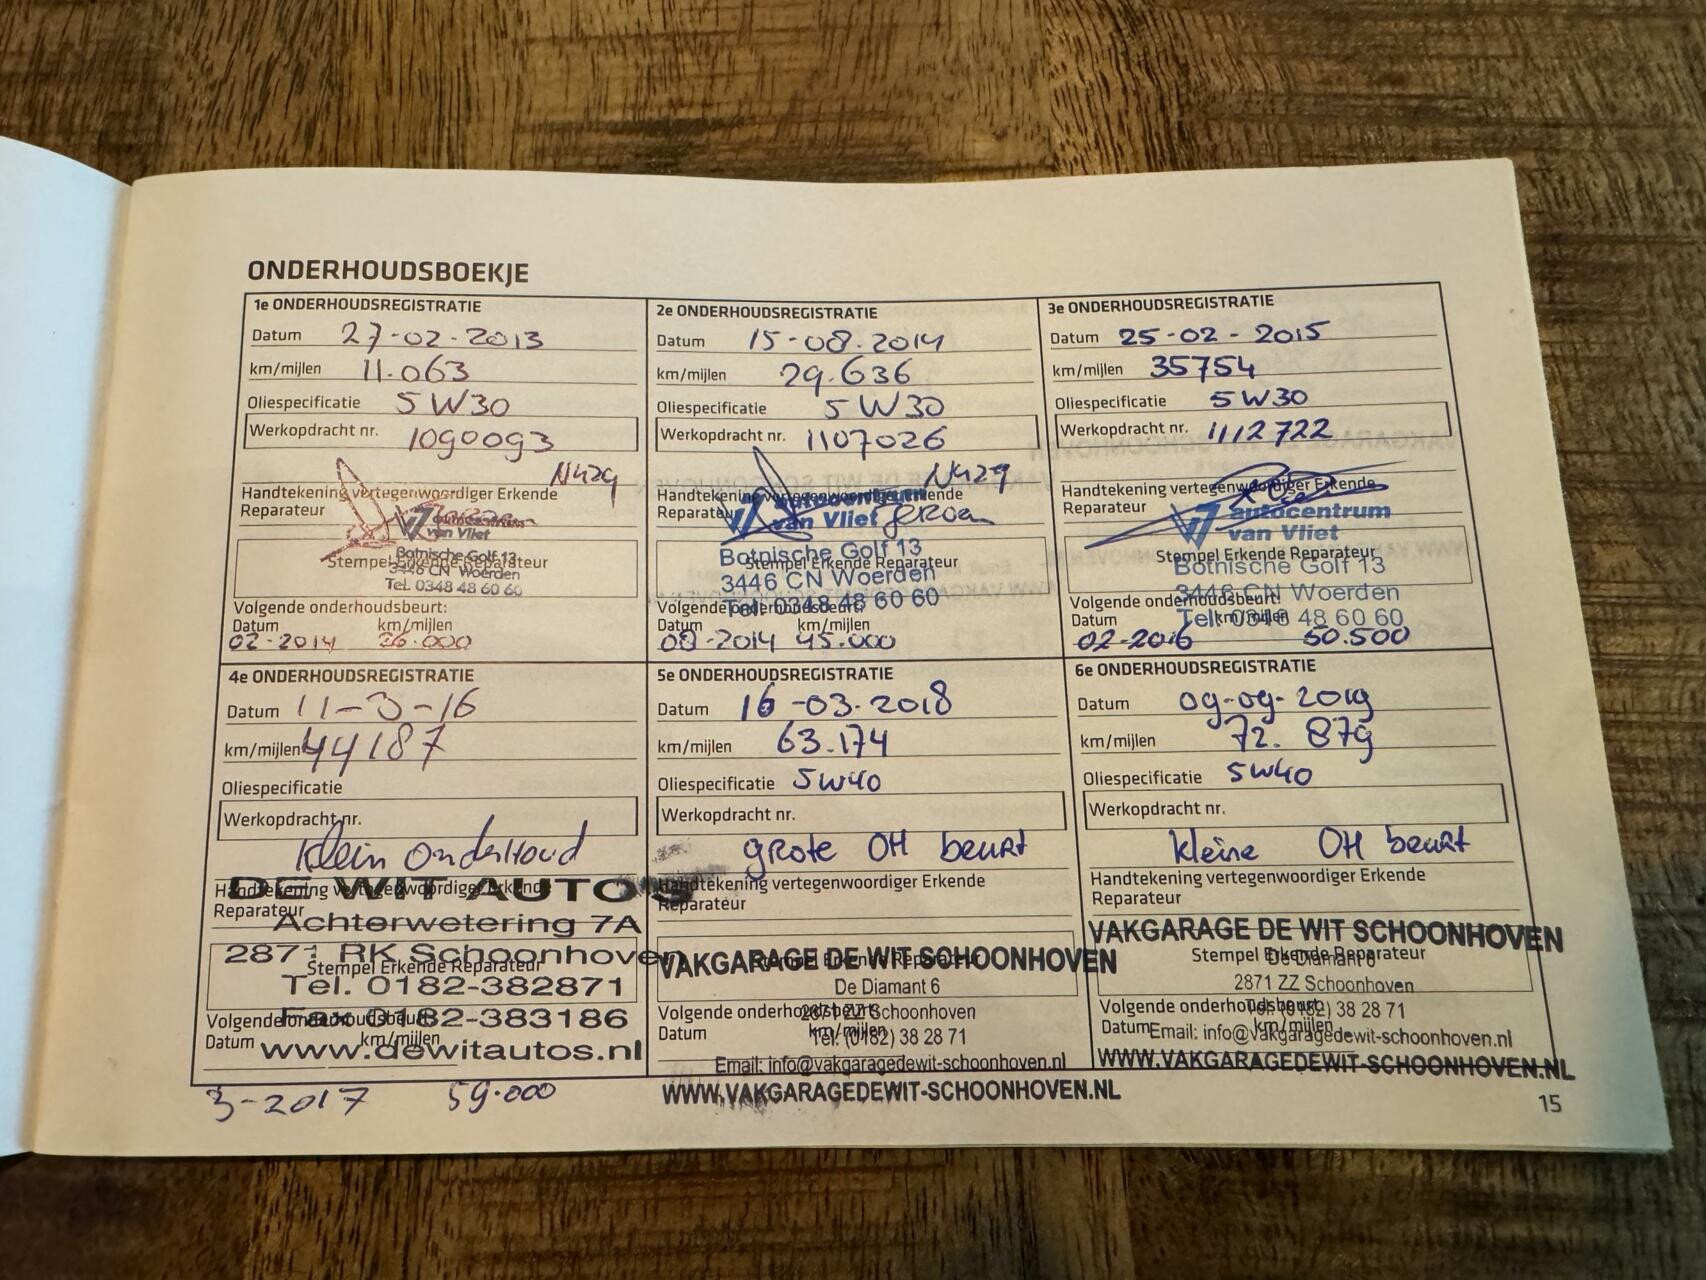 ONDERHOUDSBOEKJE
1e ONDERHOUDSREGISTRATIE
Datum 27-02-2013
km/mijlen 11.063
Oliespecificatie 5W30
Werkopdracht nr. 1090093
N429
Handtekening vertegenwoordiger Erkende
Reparateur
autocentrum
van Vliet
Botnische Golf 13
Stempel Erkende Reparateur
3446 CN Woerden
Tel. 0348 48 60 60
Volgende onderhoudsbeurt:
Datum km/mijlen
02-2014 26.000
2e ONDERHOUDSREGISTRATIE
Datum 15-08.2014
km/mijlen 29.636
Oliespecificatie 5W30
Werkopdracht nr. 1107026
N429
Handtekening vertegenwoordiger Erkende
Reparateur
autocentrum
van Vliet
Jeroen
Botnische Golf 13
Stempel Erkende Reparateur
3446 CN Woerden
Tel. 0348 48 60 60
Volgende onderhoudsbeurt:
Datum km/mijlen
08-2014 45.000
3e ONDERHOUDSREGISTRATIE
Datum 25-02-2015
km/mijlen 35754
Oliespecificatie 5W30
Werkopdracht nr. 1112722
Handtekening vertegenwoordiger Erkende
Reparateur
autocentrum
van Vliet
Stempel Erkende Reparateur
Botnische Golf 13
3446 CN Woerden
Volgende onderhoudsbeurt:
Tel. 0348 48 60 60
Datum km/mijlen
02-2016 50.500
4e ONDERHOUDSREGISTRATIE
Datum 11-3-16
km/mijlen 44187
Oliespecificatie
Werkopdracht nr.
Klein onderHoud
DE WIT AUTO'S
Handtekening vertegenwoordiger Erkende
Reparateur
Achterwetering 7A
2871 RK Schoonhoven
Stempel Erkende Reparateur
Tel. 0182-382871
Fax 0182-383186
Volgende onderhoudsbeurt:
Datum km/mijlen
www.dewitautos.nl
3-2017 59.000
5e ONDERHOUDSREGISTRATIE
Datum 16-03-2018
km/mijlen 63.174
Oliespecificatie 5W40
Werkopdracht nr.
grote OH beurt
Handtekening vertegenwoordiger Erkende
Reparateur
VAKGARAGE DE WIT SCHOONHOVEN
Stempel Erkende Reparateur
De Diamant 6
2871 ZZ Schoonhoven
Volgende onderhoudsbeurt:
Datum km/mijlen
Tel. (0182) 38 28 71
Email: info@vakgaragedewit-schoonhoven.nl
WWW.VAKGARAGEDEWIT-SCHOONHOVEN.NL
6e ONDERHOUDSREGISTRATIE
Datum 09-09-2019
km/mijlen 72.879
Oliespecificatie 5W40
Werkopdracht nr.
kleine OH beurt
Handtekening vertegenwoordiger Erkende
Reparateur
VAKGARAGE DE WIT SCHOONHOVEN
Stempel Erkende Reparateur
De Diamant 6
2871 ZZ Schoonhoven
Volgende onderhoudsbeurt:
Tel. (0182) 38 28 71
Datum km/mijlen
Email: info@vakgaragedewit-schoonhoven.nl
WWW.VAKGARAGEDEWIT-SCHOONHOVEN.NL
15